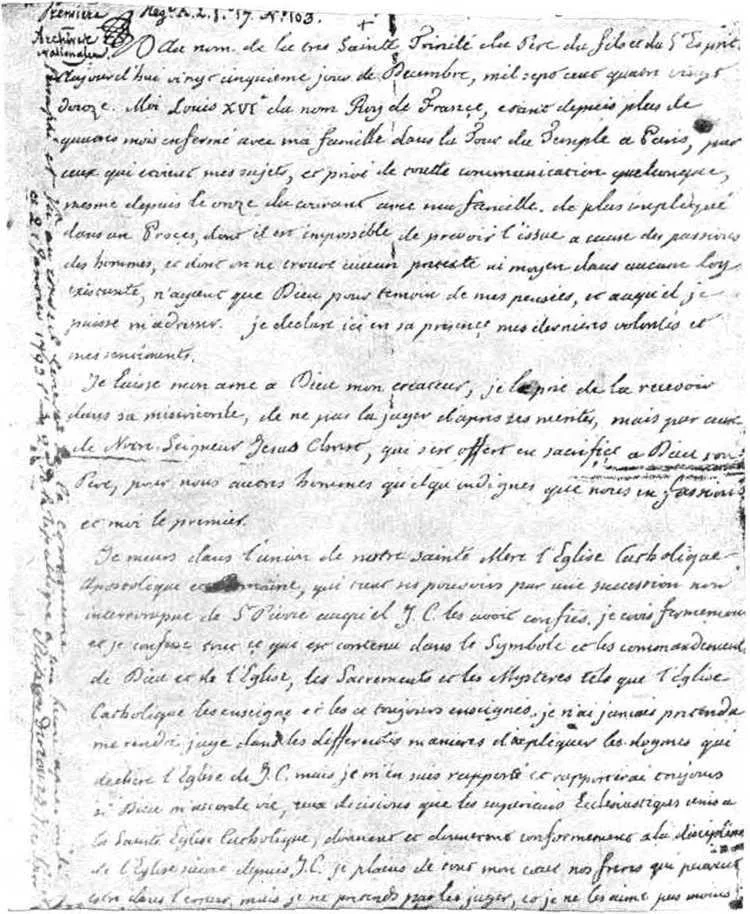 Première
Archives
Nationales
Reg. A. 2. 1. 17. N° 103.
Au nom de la tres Sainte Trinité du Pere du fils et du St Esprit.
Aujourd'hui vingt cinquieme jour de Decembre, mil sept cent quatre vingt
douze. Moi Louis XVI du nom Roy de France, etant depuis plus de
quatres mois enfermé avec ma famille dans la Tour du Temple a Paris, par
ceux qui etoient mes sujets, et privé de toutte communication quelconque,
mesme depuis le onze du courant avec ma famille. de plus impliqué
dans un Procès, dont il est impossible de prevoir l'issue a cause des passions
des hommes, et dont on ne trouve aucun pretexte ni moyen dans aucune Loy
existante, n'ayant que Dieu pour temoin de mes pensées, et auquel je
puisse m'adresser. je declare ici en sa presence mes dernieres volontés et
mes sentiments.
Je laisse mon ame a Dieu mon createur, je le prie de la recevoir
dans sa misericorde, de ne pas la juger d'apres ses merites, mais par ceux
de Notre Seigneur Jesus Christ, qui s'est offert en sacrifice a Dieu son
Pere, pour nous autres hommes quelqu'indignes que nous en fussions
et moi le premier.
Je meurs dans l'union de nostre sainte Mere l'Eglise Catholique
Apostolique et Romaine, qui tient ses pouvoirs par une succession non
interrompue de St Pierre auquel J.C. les avoit confiés. je crois fermement
et je confesse tout ce qui est contenu dans le Symbole et les commandements
de Dieu et de l'Eglise, les Sacrements et les Mysteres tels que l'Eglise
Catholique les enseigne et les a toujours enseignés. je n'ai jamais pretendu
me rendre juge dans les differentes manieres d'expliquer les dogmes qui
dechire l'Eglise de J.C. mais je m'en suis rapporté et rapporterai toujours
si Dieu m'accorde vie, aux decisions que les superieurs Ecclesiastiques unis a
la Sainte Eglise Catholique, donnent et donneront conformement a la discipline
de l'Eglise suivie depuis J.C. je plains de tout mon cœur nos freres qui peuvent
estre dans l'erreur, mais je ne pretends pas les juger, et je ne les aime pas moins